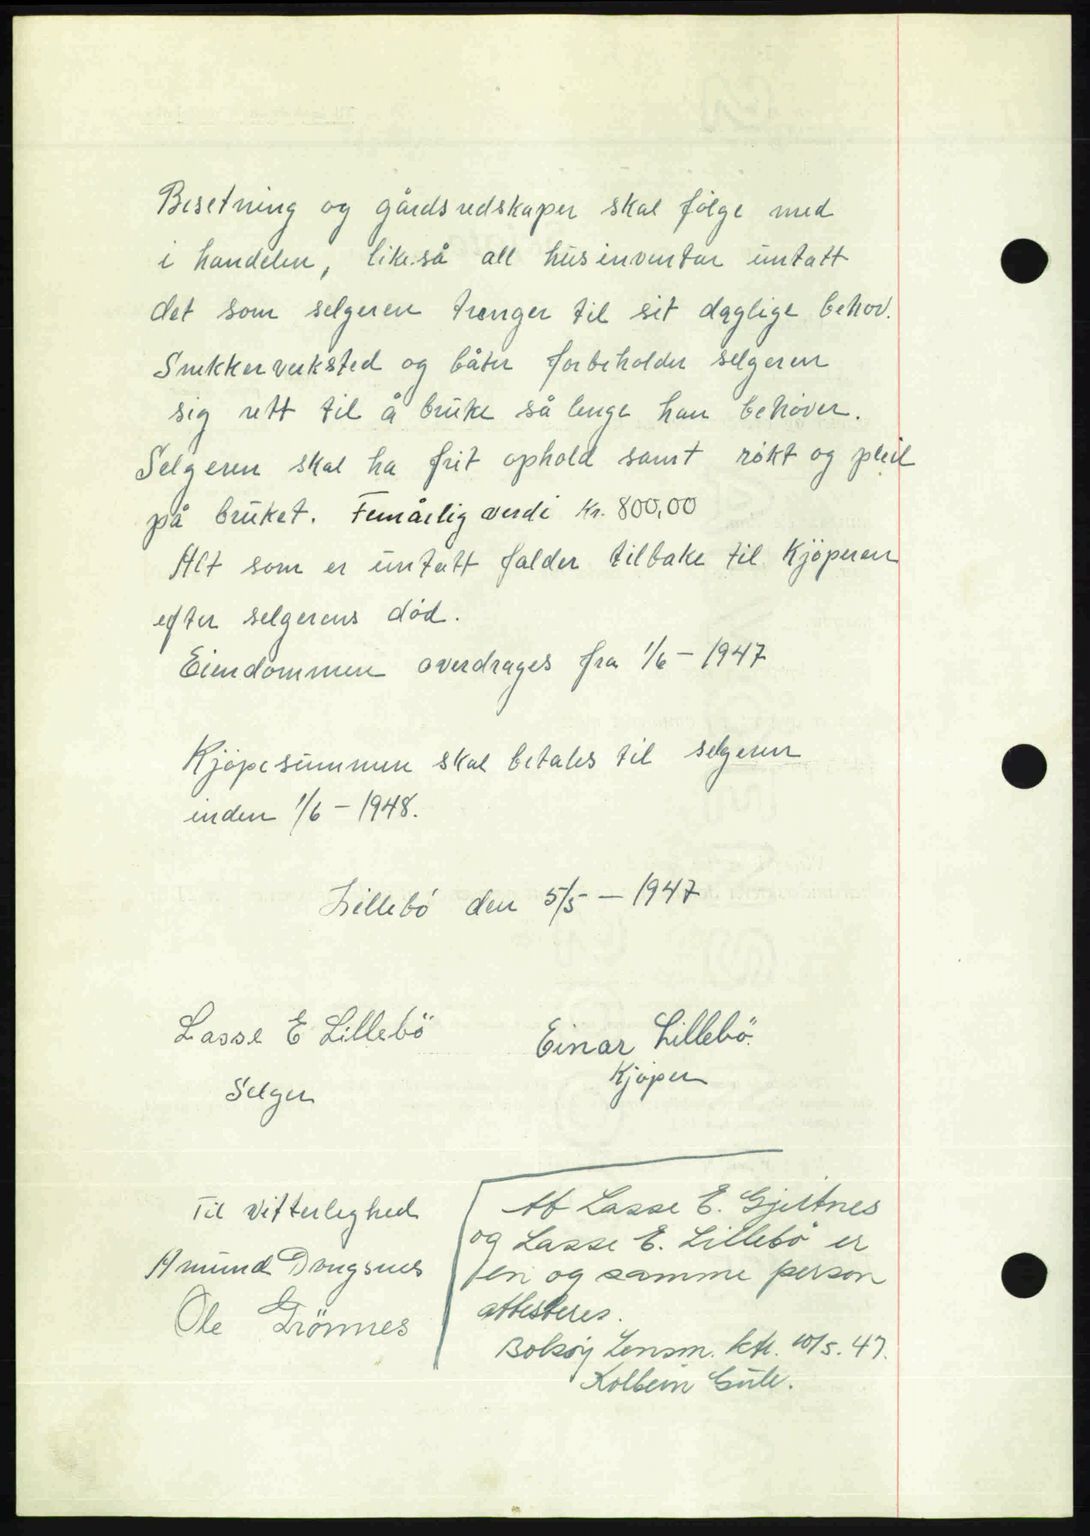 Besetning og gårdsredskaper skal følge med
i handelen, likeså all husinventar untatt
det som selgeren trenger til sit daglige behov.
Snekkerverksted og båter forbeholder selgeren
sig rett til å bruke så lenge han behøver.
Selgeren skal ha frit ophold samt røkt og pleil
på bruket. Femårlig verdi kr. 800,00
Alt som er untatt falder tilbake til Kjöperen
efter selgerens död.
Eiendommen overdrages fra 1/6 – 1947
Kjöpesummen skal betales til selgeren
inden 1/6 – 1948.
Lillebö den 5/5 – 1947
Lasse E Lillebö
Selger
Einar Lillebö.
Kjöper
Til Vitterleghed
Amund Drugsnes
Ole Grönnes
At Lasse E. Gjeitnes
og Lasse E. Lillebö er
en og samme person
attesteres.
Bolsöy Lensm. ktr. 10/5. 47.
Kolbein